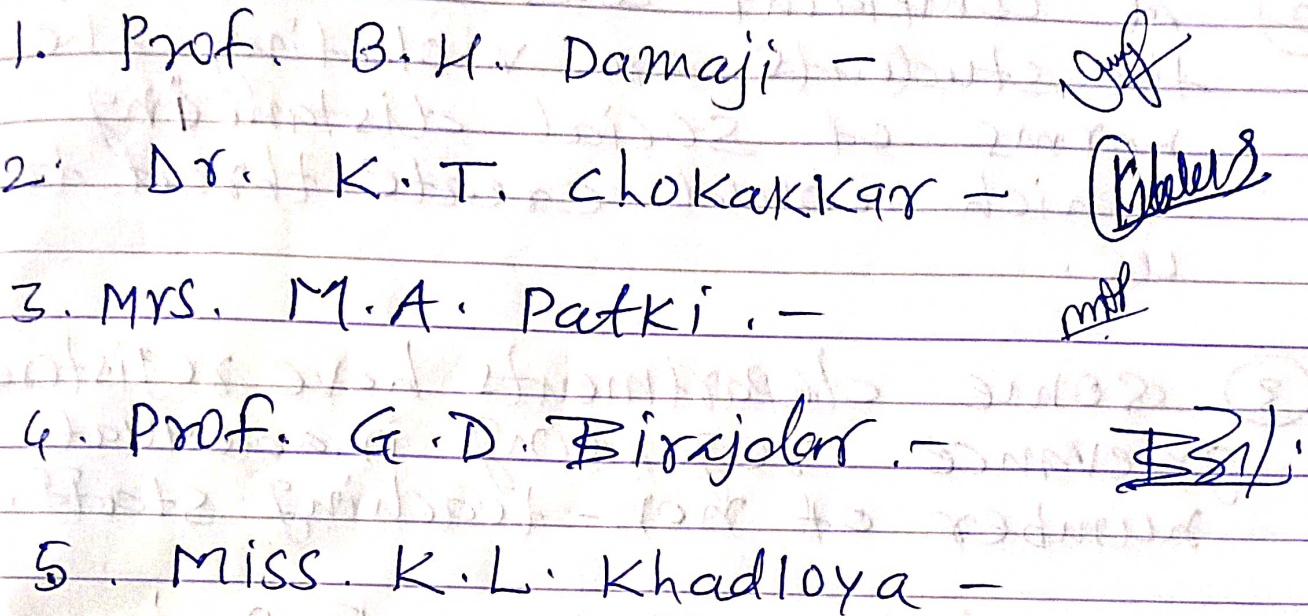 1. Prof. B.H. Damaji -
2. Dr. K.T. Chokakkar -
3. Mrs. M.A. Patki. -
4. Prof. G.D. Birajdar. -
5. Miss. K.L. Khadloya -